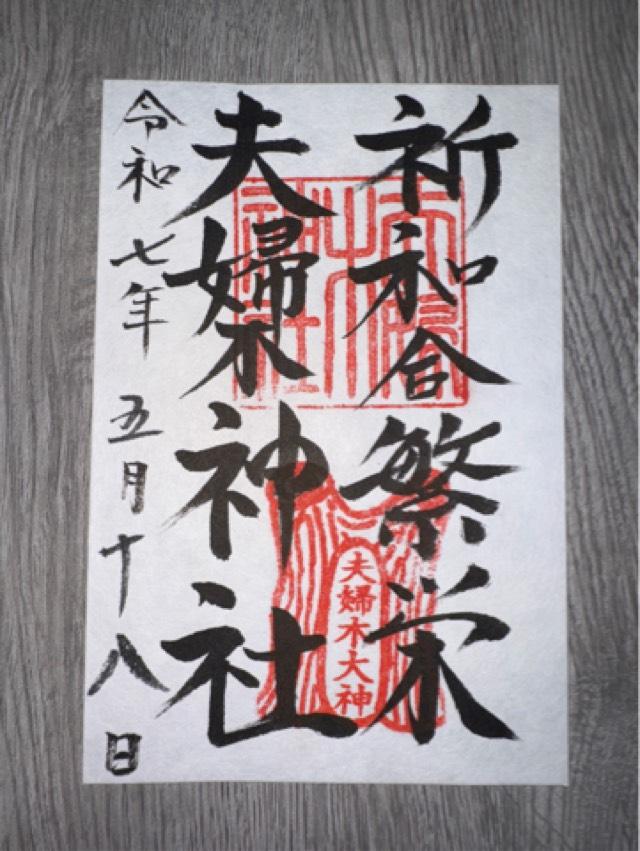 祈和合繁栄
夫婦木神社
夫婦木大神
令和七年五月十八日